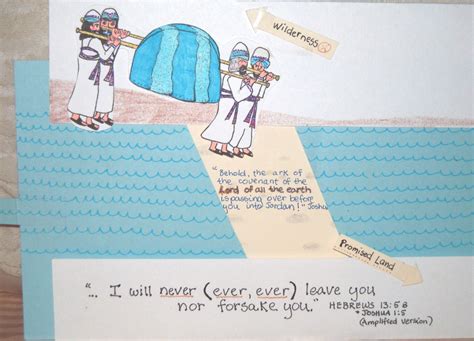 Wilderness
"Behold, the ark of
the covenant of the
Lord of all the earth
is passing over before
you into Jordan!" Joshua
Promised Land
"... I will never (ever, ever) leave you
nor forsake you." HEBREWS 13:5B
*JOSHUA 1:5
(Amplified version)